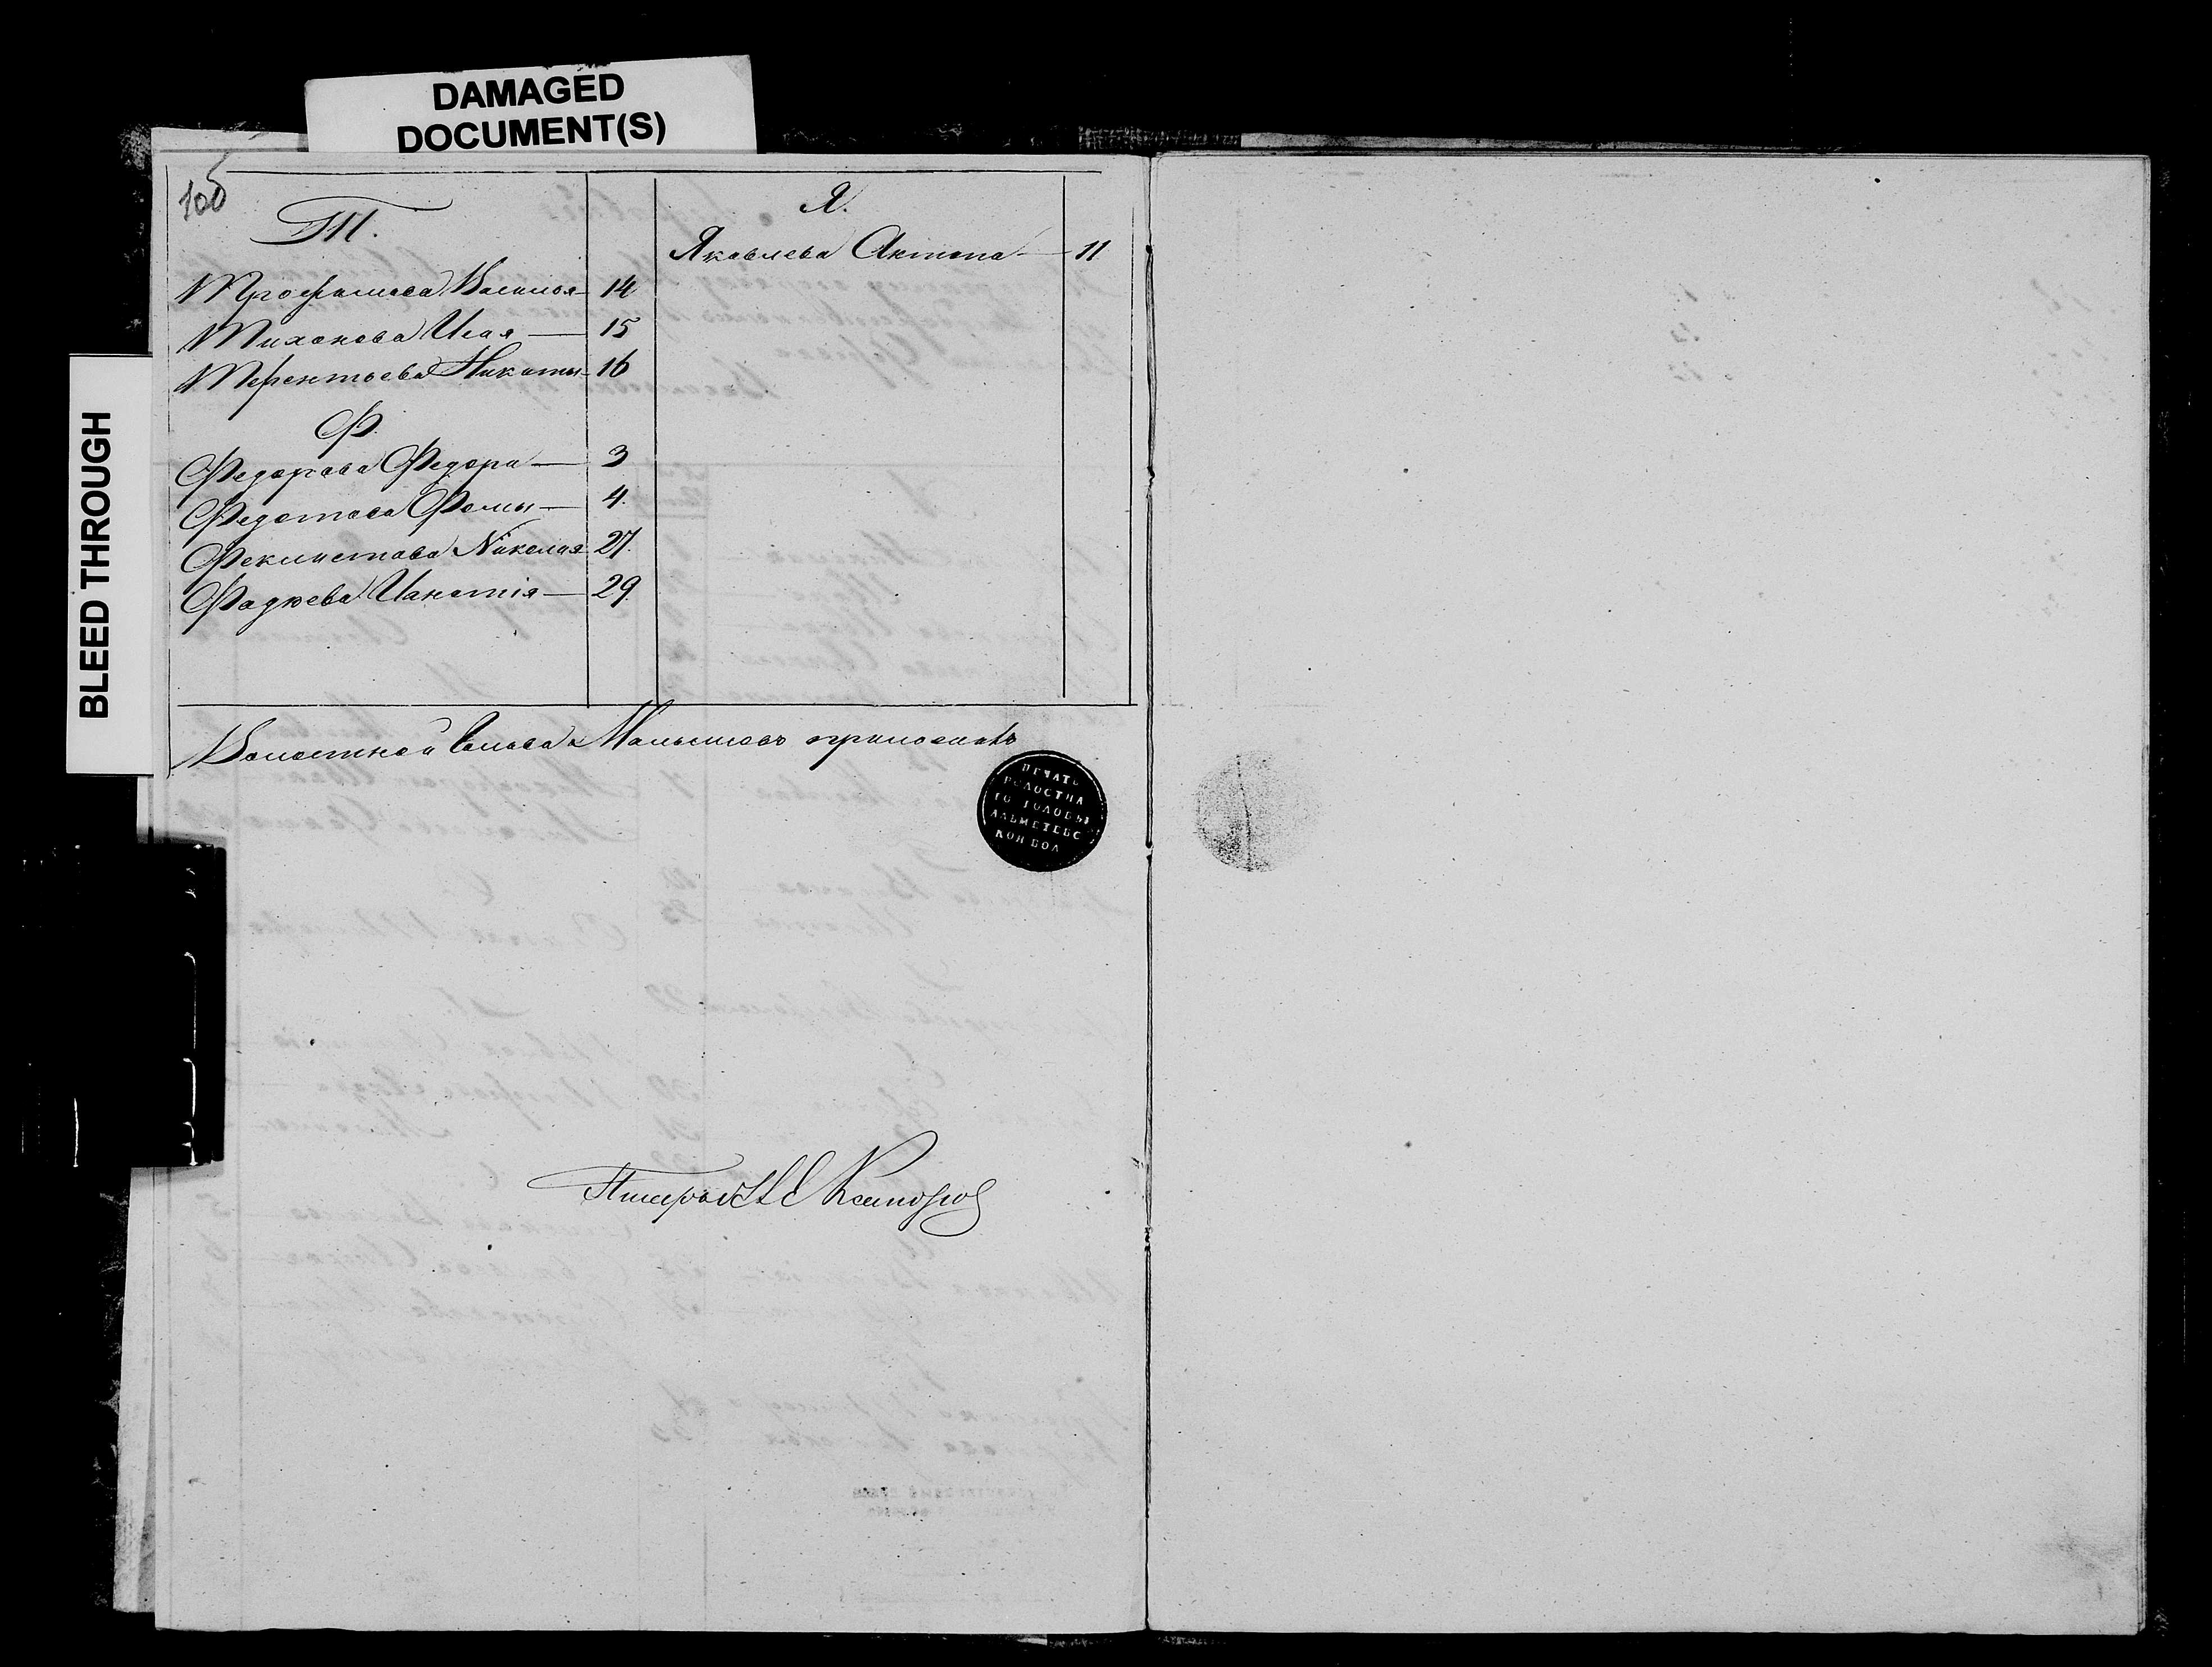 DAMAGED
DOCUMENT(S)
BLEED THROUGH
106
Т.
Трофимова Василья — 14
Тихонова Исая — 15
Терентьева Никиты — 16
Ф.
Федорова Федора — 3
Федотова Фомы — 4.
Феклистова Николая 27.
Фадѣева Игнатія — 29.
Я.
Яковлева Антона — 11
Волостной Голова Малышевъ приложилъ
ПЕЧАТЬ
ВОЛОСТНА
ГО ГОЛОВЫ
АЛЬМЕТЕВС
КОЙ ВОЛ